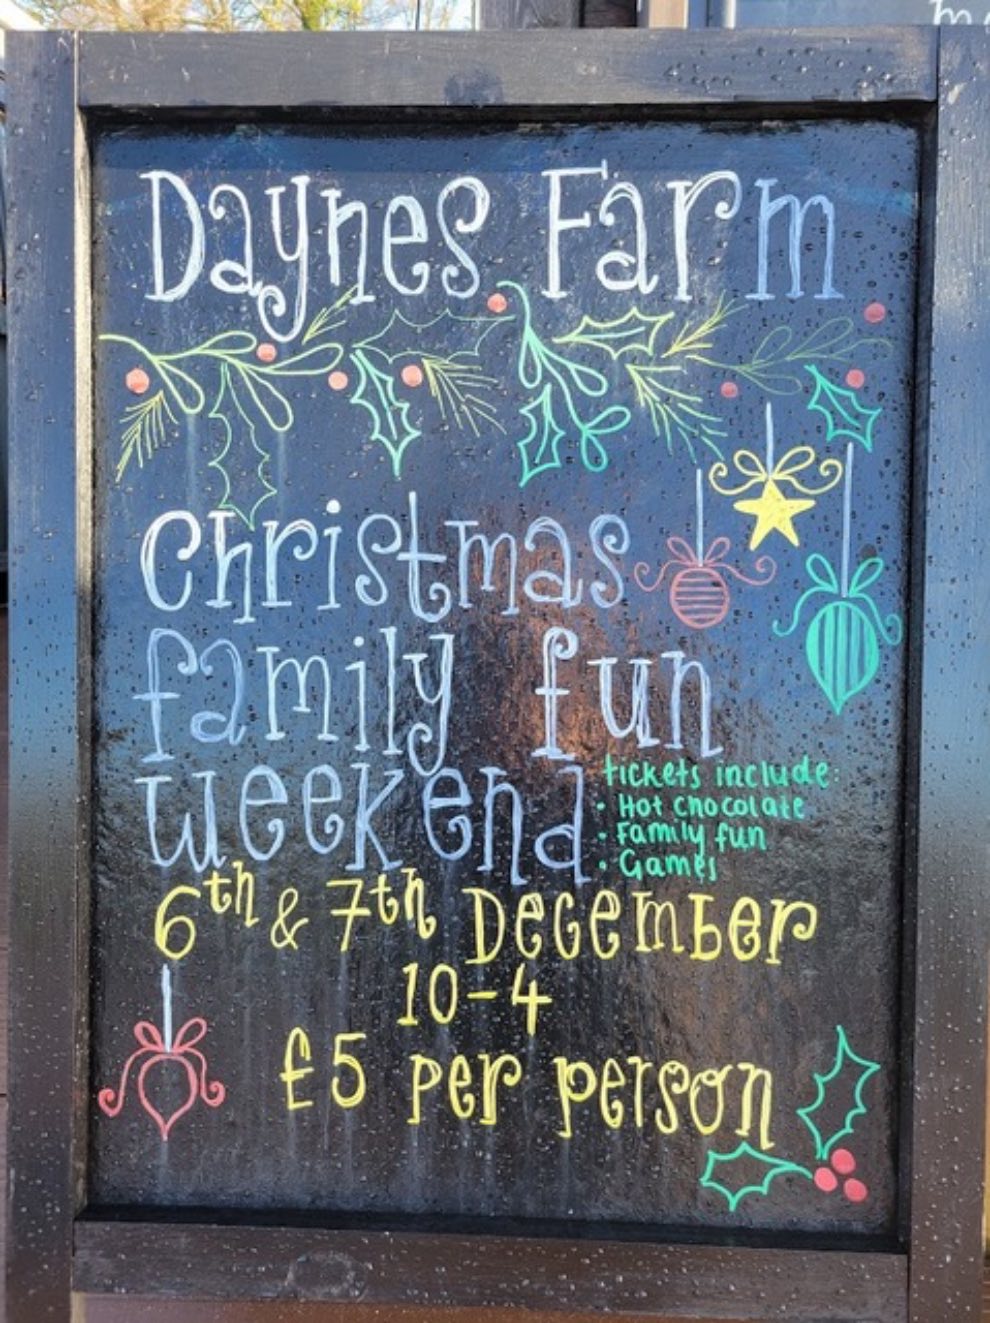 Daynes Farm
Christmas
family fun
weekend
tickets include:
• Hot chocolate
• Family fun
• Games
6th & 7th December
10-4
£5 per person